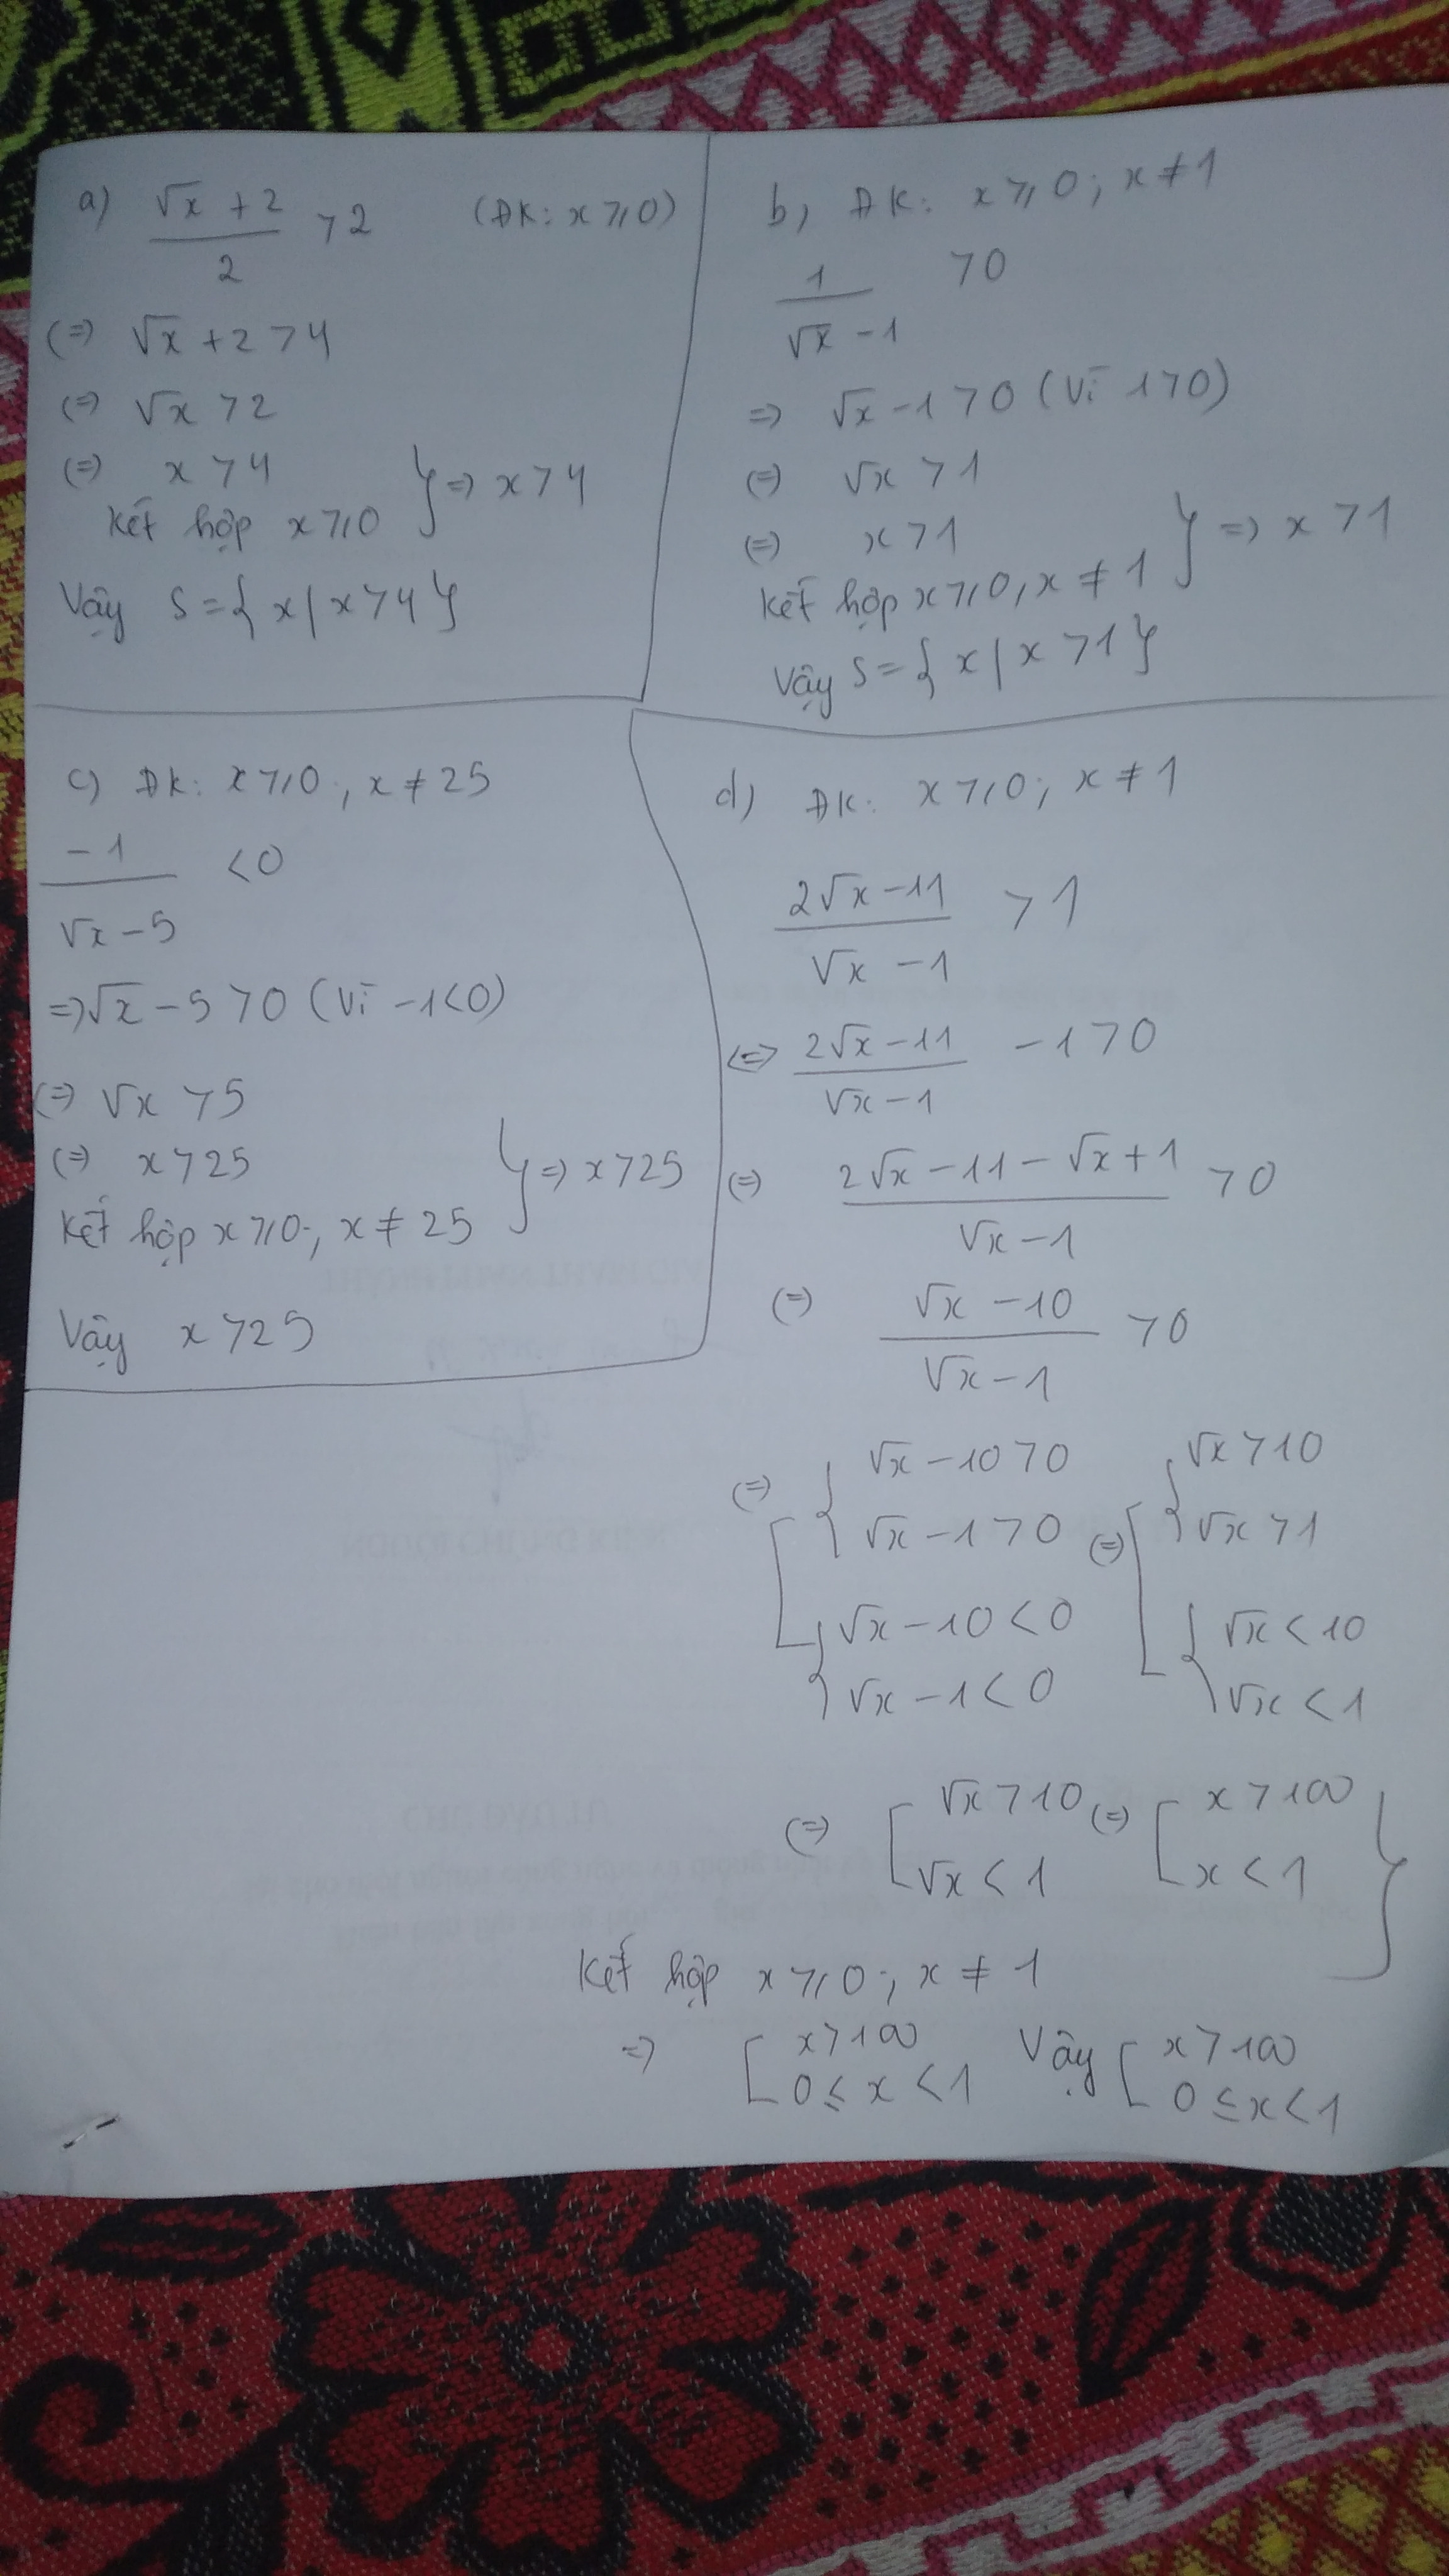 a) (√x + 2)/2 > 2 (ĐK: x ≥ 0)
(=) √x + 2 > 4
(=) √x > 2
(=) x > 4
Kết hợp x ≥ 0 } => x > 4
Vậy S = { x | x > 4 }
b) ĐK: x ≥ 0; x ≠ 1
1/(√x - 1) > 0
=> √x - 1 > 0 (Vì 1 > 0)
(=) √x > 1
(=) x > 1
Kết hợp x ≥ 0, x ≠ 1 } => x > 1
Vậy S = { x | x > 1 }
c) ĐK: x ≥ 0; x ≠ 25
-1/(√x - 5) < 0
=> √x - 5 > 0 (Vì -1 < 0)
(=) √x > 5
(=) x > 25
Kết hợp x ≥ 0; x ≠ 25 } => x > 25
Vậy x > 25
d) ĐK: x ≥ 0; x ≠ 1
(2√x - 11)/(√x - 1) > 1
<=> (2√x - 11)/(√x - 1) - 1 > 0
(=) (2√x - 11 - √x + 1)/(√x - 1) > 0
(=) (√x - 10)/(√x - 1) > 0
(=) [ { √x - 10 > 0 (=) [ { √x > 10
√x - 1 > 0 √x > 1
{ √x - 10 < 0 { √x < 10
√x - 1 < 0 √x < 1
(=) [ √x > 10 (=) [ x > 100 }
√x < 1 x < 1
Kết hợp x ≥ 0; x ≠ 1
=> [ x > 100 Vậy [ x > 100
0 ≤ x < 1 0 ≤ x < 1